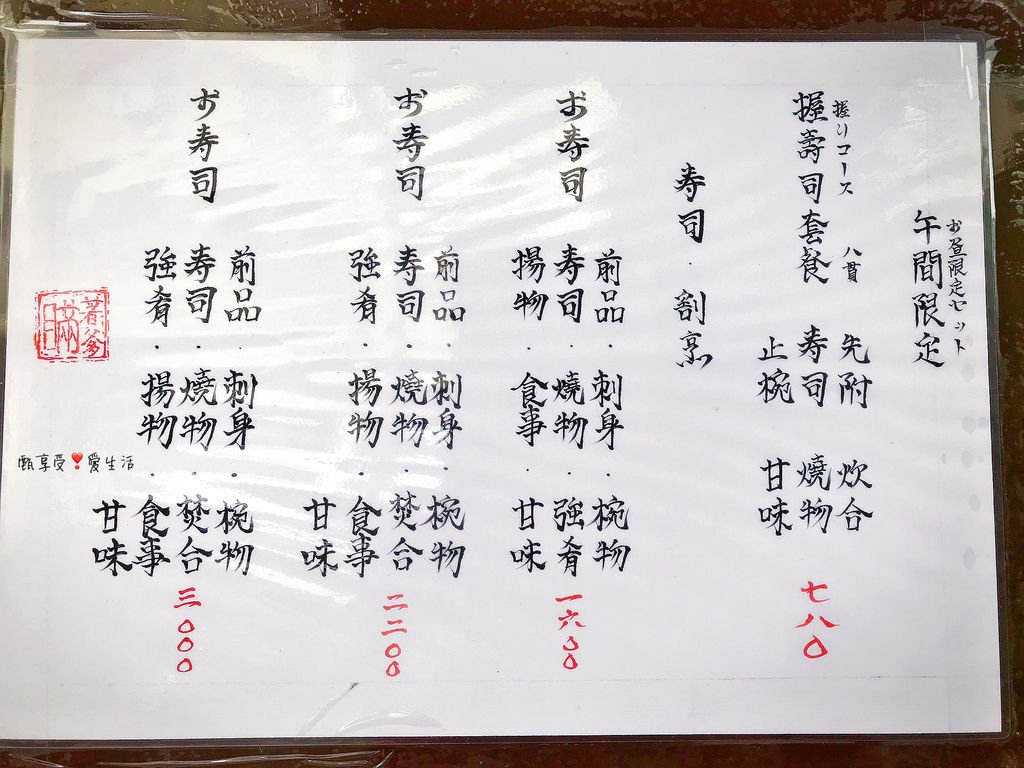 お昼限定セット
午間限定
握りコース 八貫
握壽司套餐
先附 炊合
寿司 燒物
止椀 甘味
七八〇
寿司·割烹
お寿司
前品·刺身·椀物
寿司·燒物·強肴
揚物·食事·甘味
一六〇〇
お寿司
前品·刺身·椀物
寿司·燒物·焚合
強肴·揚物·食事
甘味
二二〇〇
お寿司
前品·刺身·椀物
寿司·燒物·焚合
強肴·揚物·食事
甘味
三〇〇〇
甄享受❣愛生活